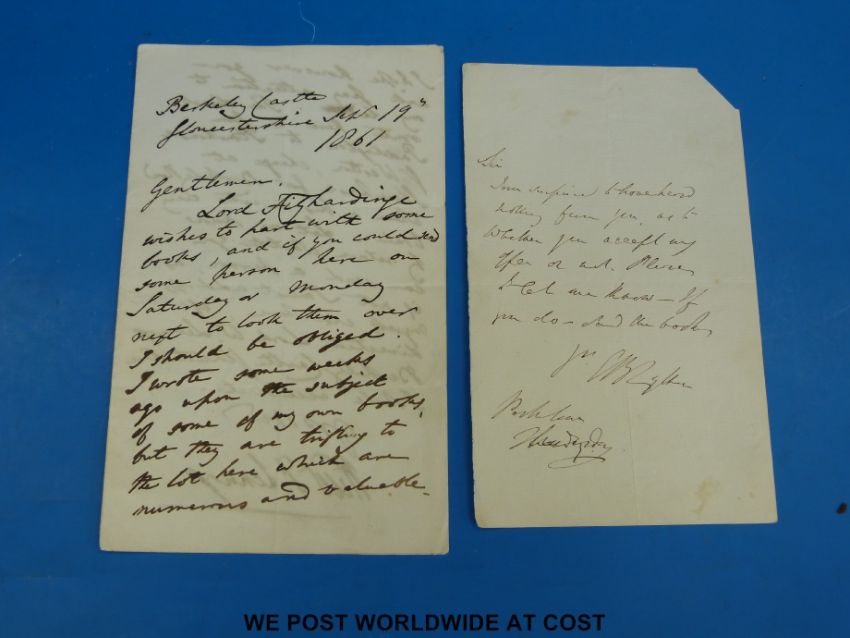 Berkeley Castle
Gloucestershire Sepr 19th
1861
Gentlemen.
Lord Fitzhardinge
wishes to part with some
books, and if you could send
some person here on
Saturday or Monday
next to look them over
I should be obliged.
I wrote some weeks
ago upon the subject
of some of my own books,
but they are trifling to
the lot here which are
numerous and valuable.
Sir
I am surprised to have heard
nothing from you as to
whether you accept my
offer or not. Please
to let me know - If
you do - send the books
Yrs
Park Lane
Thursday
WE POST WORLDWIDE AT COST